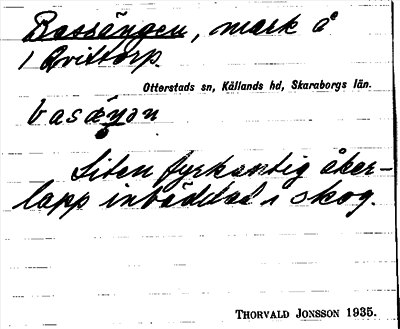 Bassängen, mark å
1 Qvittorp.
Otterstads sn, Kållands hd, Skaraborgs län.
basäŋən
Liten fyrkantig åker-
lapp inbäddad i skog.
THORVALD JONSSON 1935.